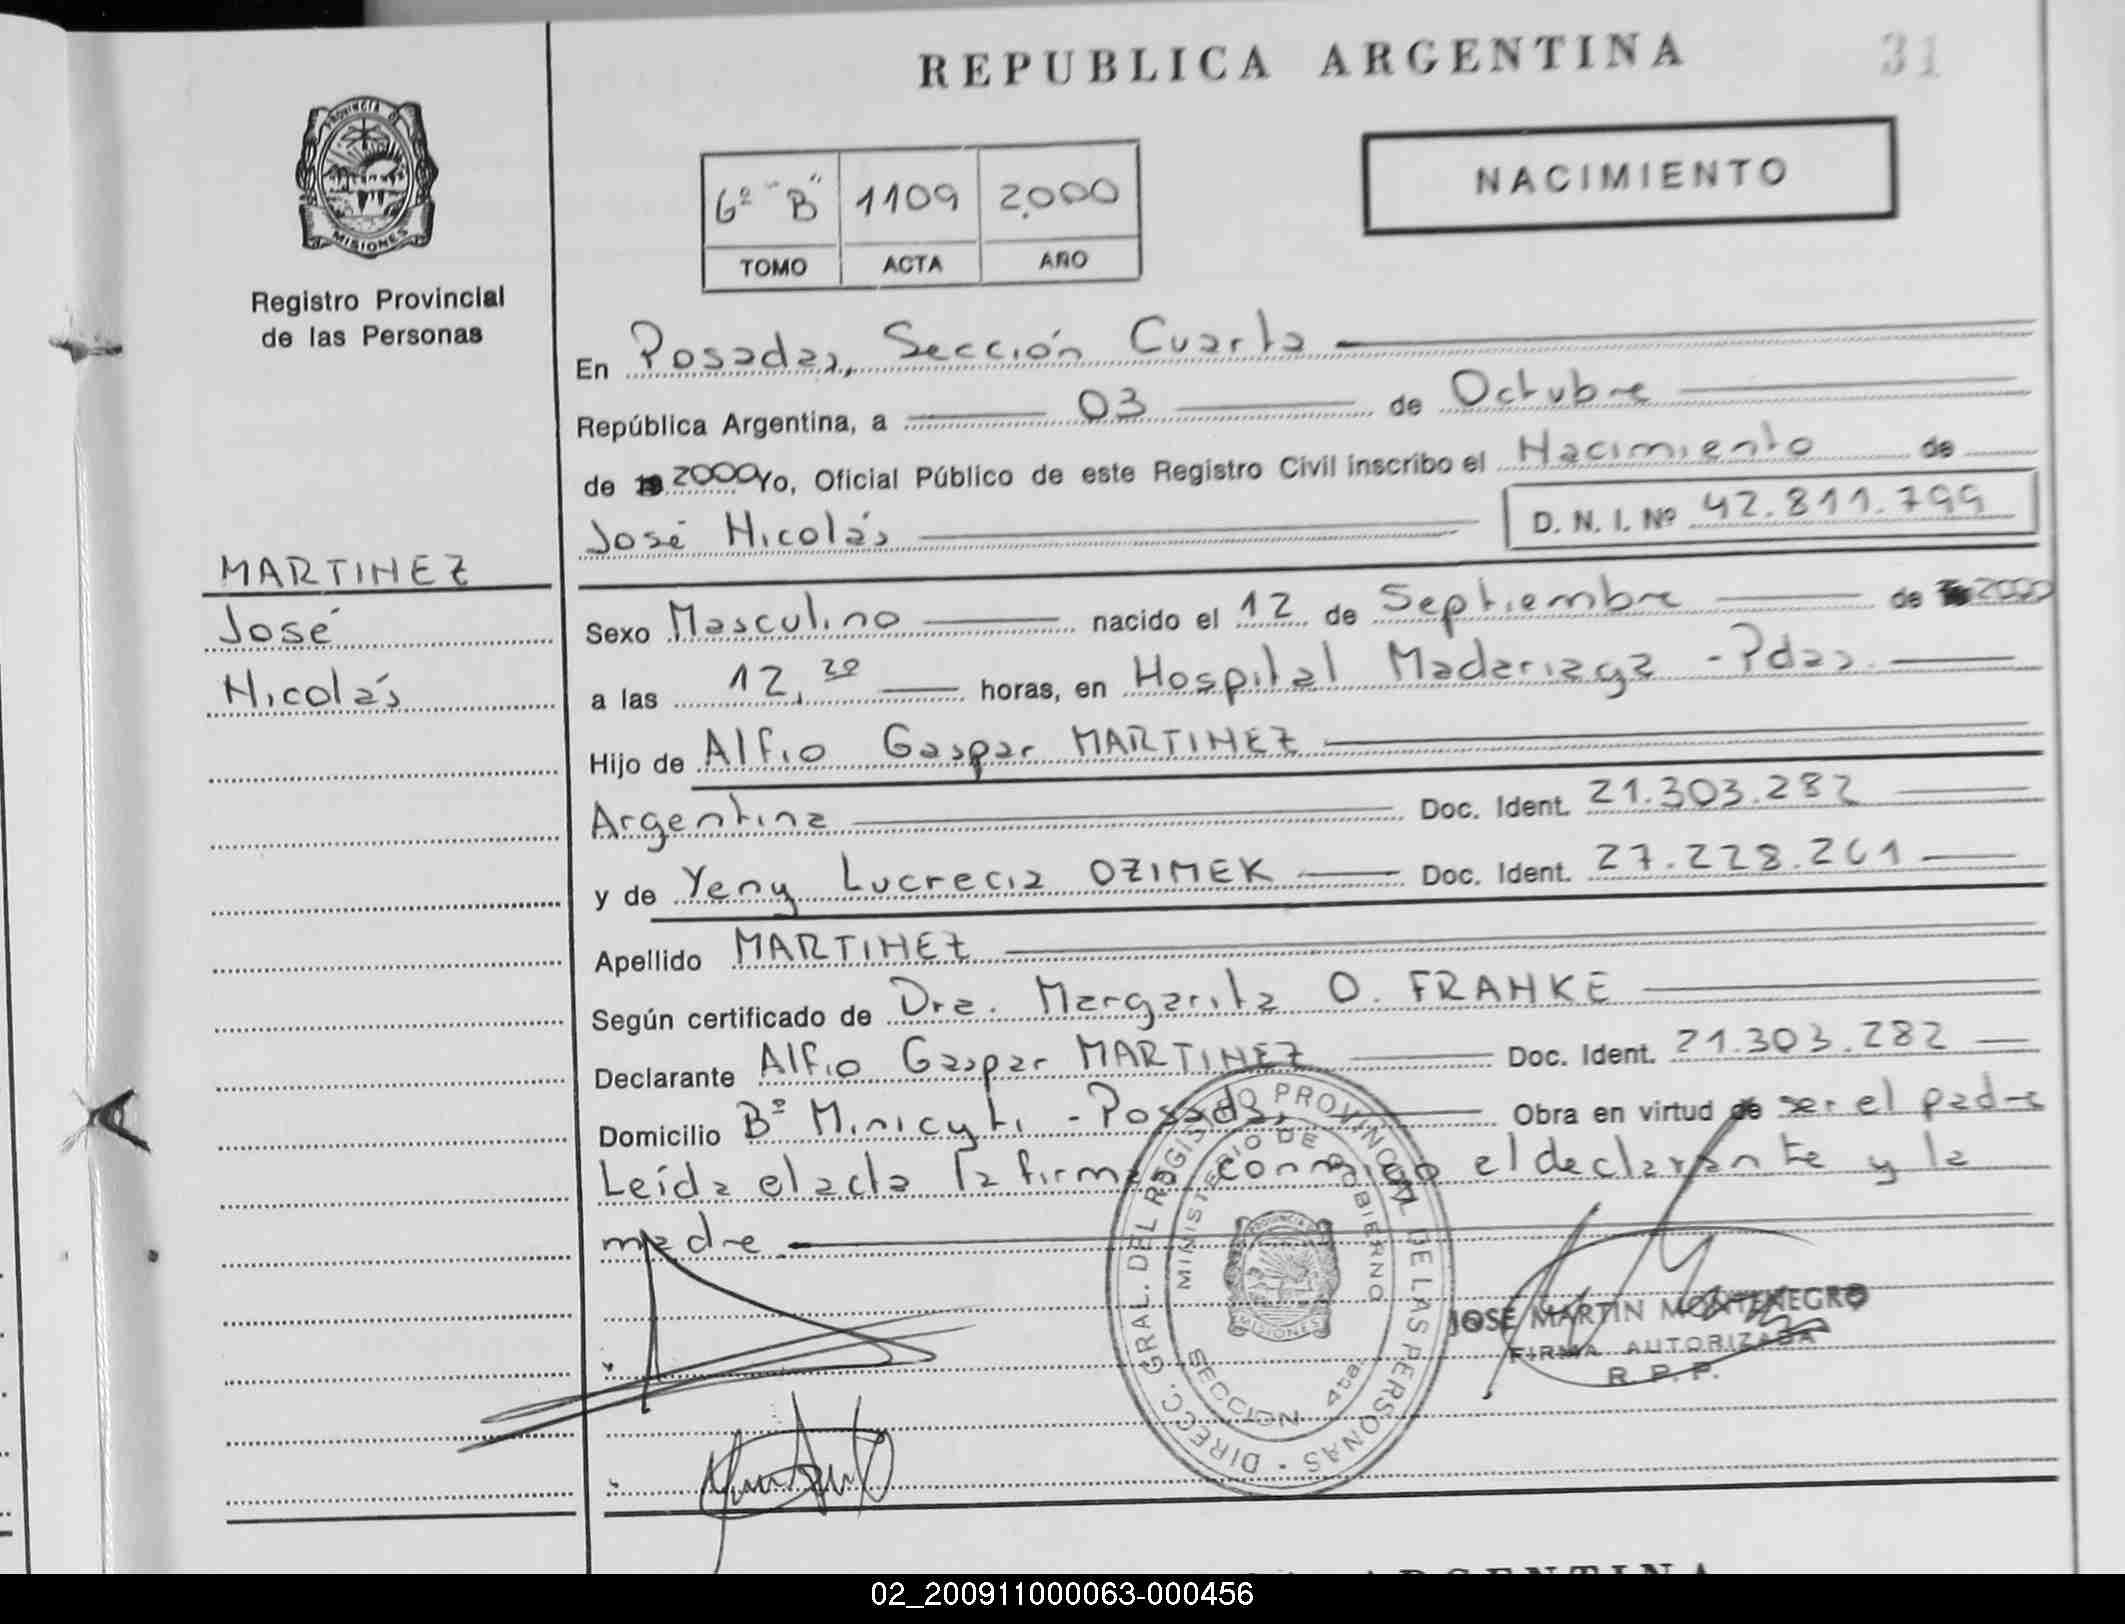 REPUBLICA ARGENTINA
31
PROVINCIA DE
MISIONES
Registro Provincial
de las Personas
6º "B" 1109 2.000
TOMO ACTA AÑO
NACIMIENTO
En Posadas, Sección Cuarta
República Argentina, a 03 de Octubre
de 2000 Yo, Oficial Público de este Registro Civil inscribo el Nacimiento de
José Nicolás D. N. I. Nº 42.811.799
MARTINEZ
José
Nicolás
Sexo Masculino nacido el 12 de Septiembre de 2000
a las 12,20 horas, en Hospital Madariaga - Pdas.
Hijo de Alfio Gaspar MARTINEZ
Argentina Doc. Ident. 21.303.282
y de Yeny Lucrecia OZIMEK Doc. Ident. 27.228.261
Apellido MARTINEZ
Según certificado de Dra. Margarita O. FRANKE
Declarante Alfio Gaspar MARTINEZ Doc. Ident. 21.303.282
Domicilio Bº Minicyti - Posadas Obra en virtud de ser el padre
Leída el acta la firman conmigo el declarante y la
madre
DIRECC. GRAL. DEL REGISTRO PROVINCIAL DE LAS PERSONAS
MINISTERIO DE GOBIERNO
PROVINCIA DE
MISIONES
SECCION 4ta
JOSE MARTIN MONTENEGRO
FIRMA AUTORIZADA
R. P. P.
ARGENTINA
02_200911000063-000456